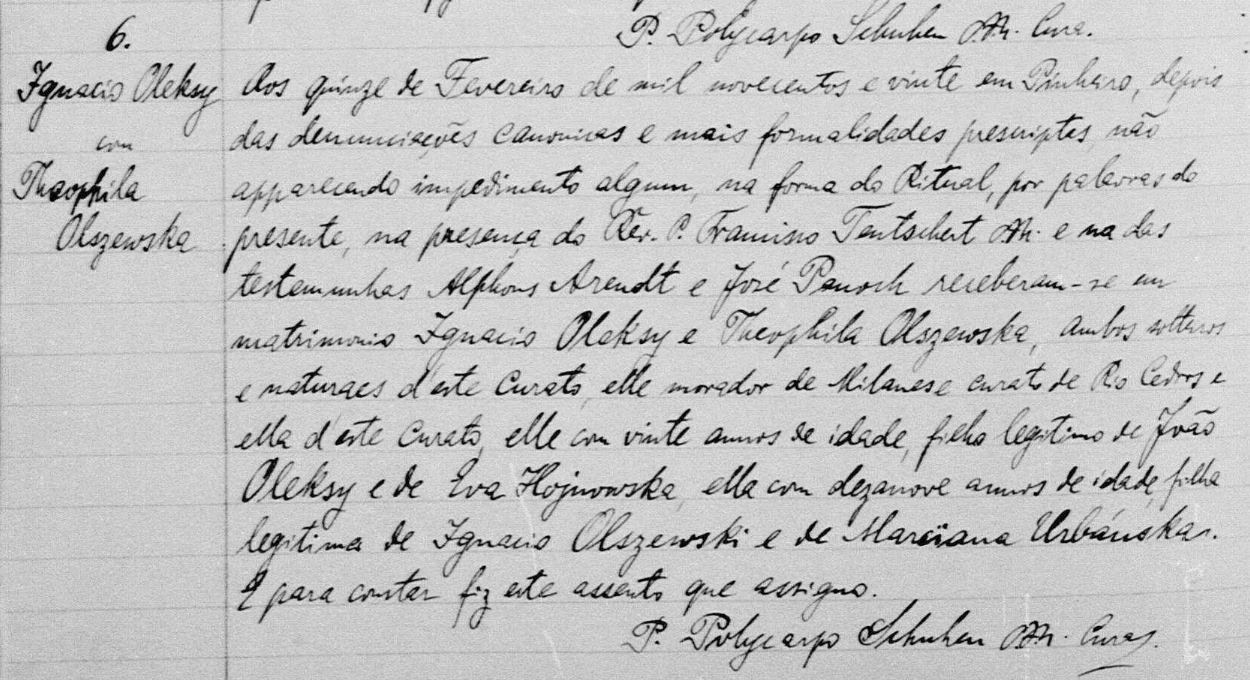 P. Polycarpo Schuhen Oth. Cura.
6.
Ignacio Oleksy
com
Theophila
Olszewska
Aos quinze de Fevereiro de mil novecentos e vinte em Pinheiro, depois
das denunciações canonicas e mais formalidades prescriptas, não
apparecendo impedimento algum, na forma do Ritual, por palavras do
presente, na presença do Rev. P. Francisco Tentschert e na das
testemunhas Alphons Arendt e José Panoch receberam-se em
matrimonio Ignacio Oleksy e Theophila Olszewska, ambos solteiros
e naturaes d'este Curato, elle morador de Milanese curato de Rio Cedros e
ella d'este Curato, elle com vinte annos de idade, filho legitimo de João
Oleksy e de Eva Hojnowska, ella com dezanove annos de idade, filha
legitima de Ignacio Olszewski e de Marciana Urbánska.
E para constar fiz este assento que assigno.
P. Polycarpo Schuhen Cura.